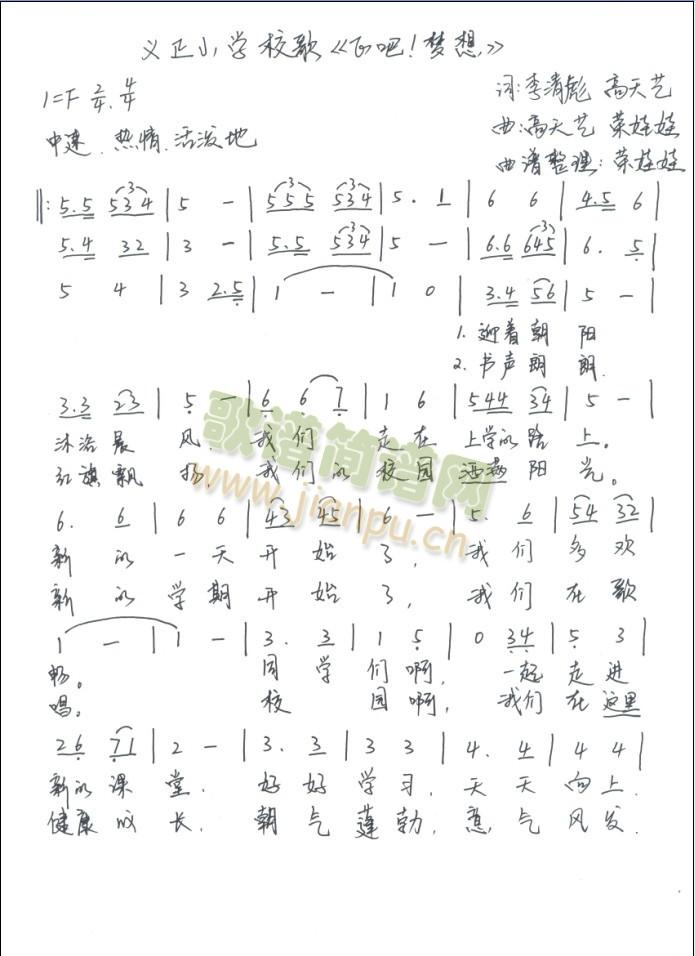 义正小学校歌《飞吧!梦想》
1=F 2/4. 4/4
词:李清彪 高天艺
中速.热情.活泼地
曲:高天艺 荣娃娃
曲谱整理:荣娃娃
‖: 5.5 534 | 5 — | 555 534 | 5. 1 | 6 6 | 4.5 6 |
5.4 32 | 3 — | 5.5 534 | 5 — | 6.6 645 | 6. 5 |
5 4 | 3 2.5 | 1 — | 1 0 | 3.4 56 | 5 — |
1. 迎着朝 阳
2. 书声朗 朗.
3.3 23 | 5 — | 6 6 7 | 1 6 | 544 34 | 5 — |
沐浴晨 风. 我们 走在 上学的路 上。
红旗飘 扬. 我们的 校园 洒满阳 光。
歌谱简谱网
www.jianpu.cn
6. 6 | 6 6 | 43 45 | 6 — | 5. 6 | 54 32 |
新 的 一 天 开 始 了, 我 们 多 欢
新 的 学 期 开 始 了, 我 们 在 歌
1 — | 1 — | 3. 3 | 1 5 | 0 34 | 5 3 |
畅。 同 学 们 啊, 一起 走 进
唱。 校 园 啊, 我们 在 这里
26 71 | 2 — | 3. 3 | 3 3 | 4. 4 | 4 4 |
新的 课 堂. 好 好 学 习, 天 天 向 上.
健康 成 长. 朝 气 蓬 勃, 意 气 风 发.